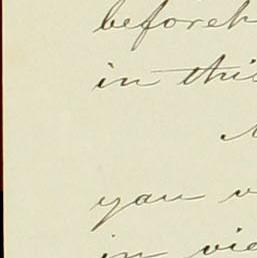 beforeh
in this
you v
in vie